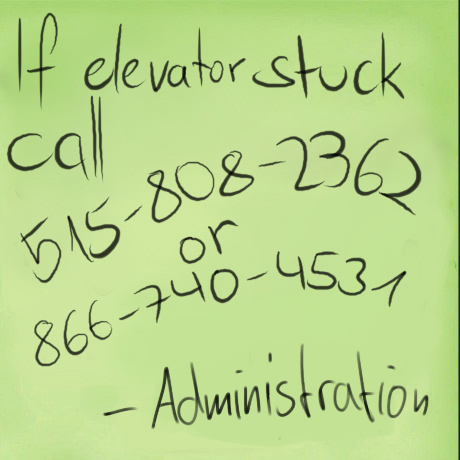 If elevator stuck
call
515-808-2362
or
866-740-4531
- Administration